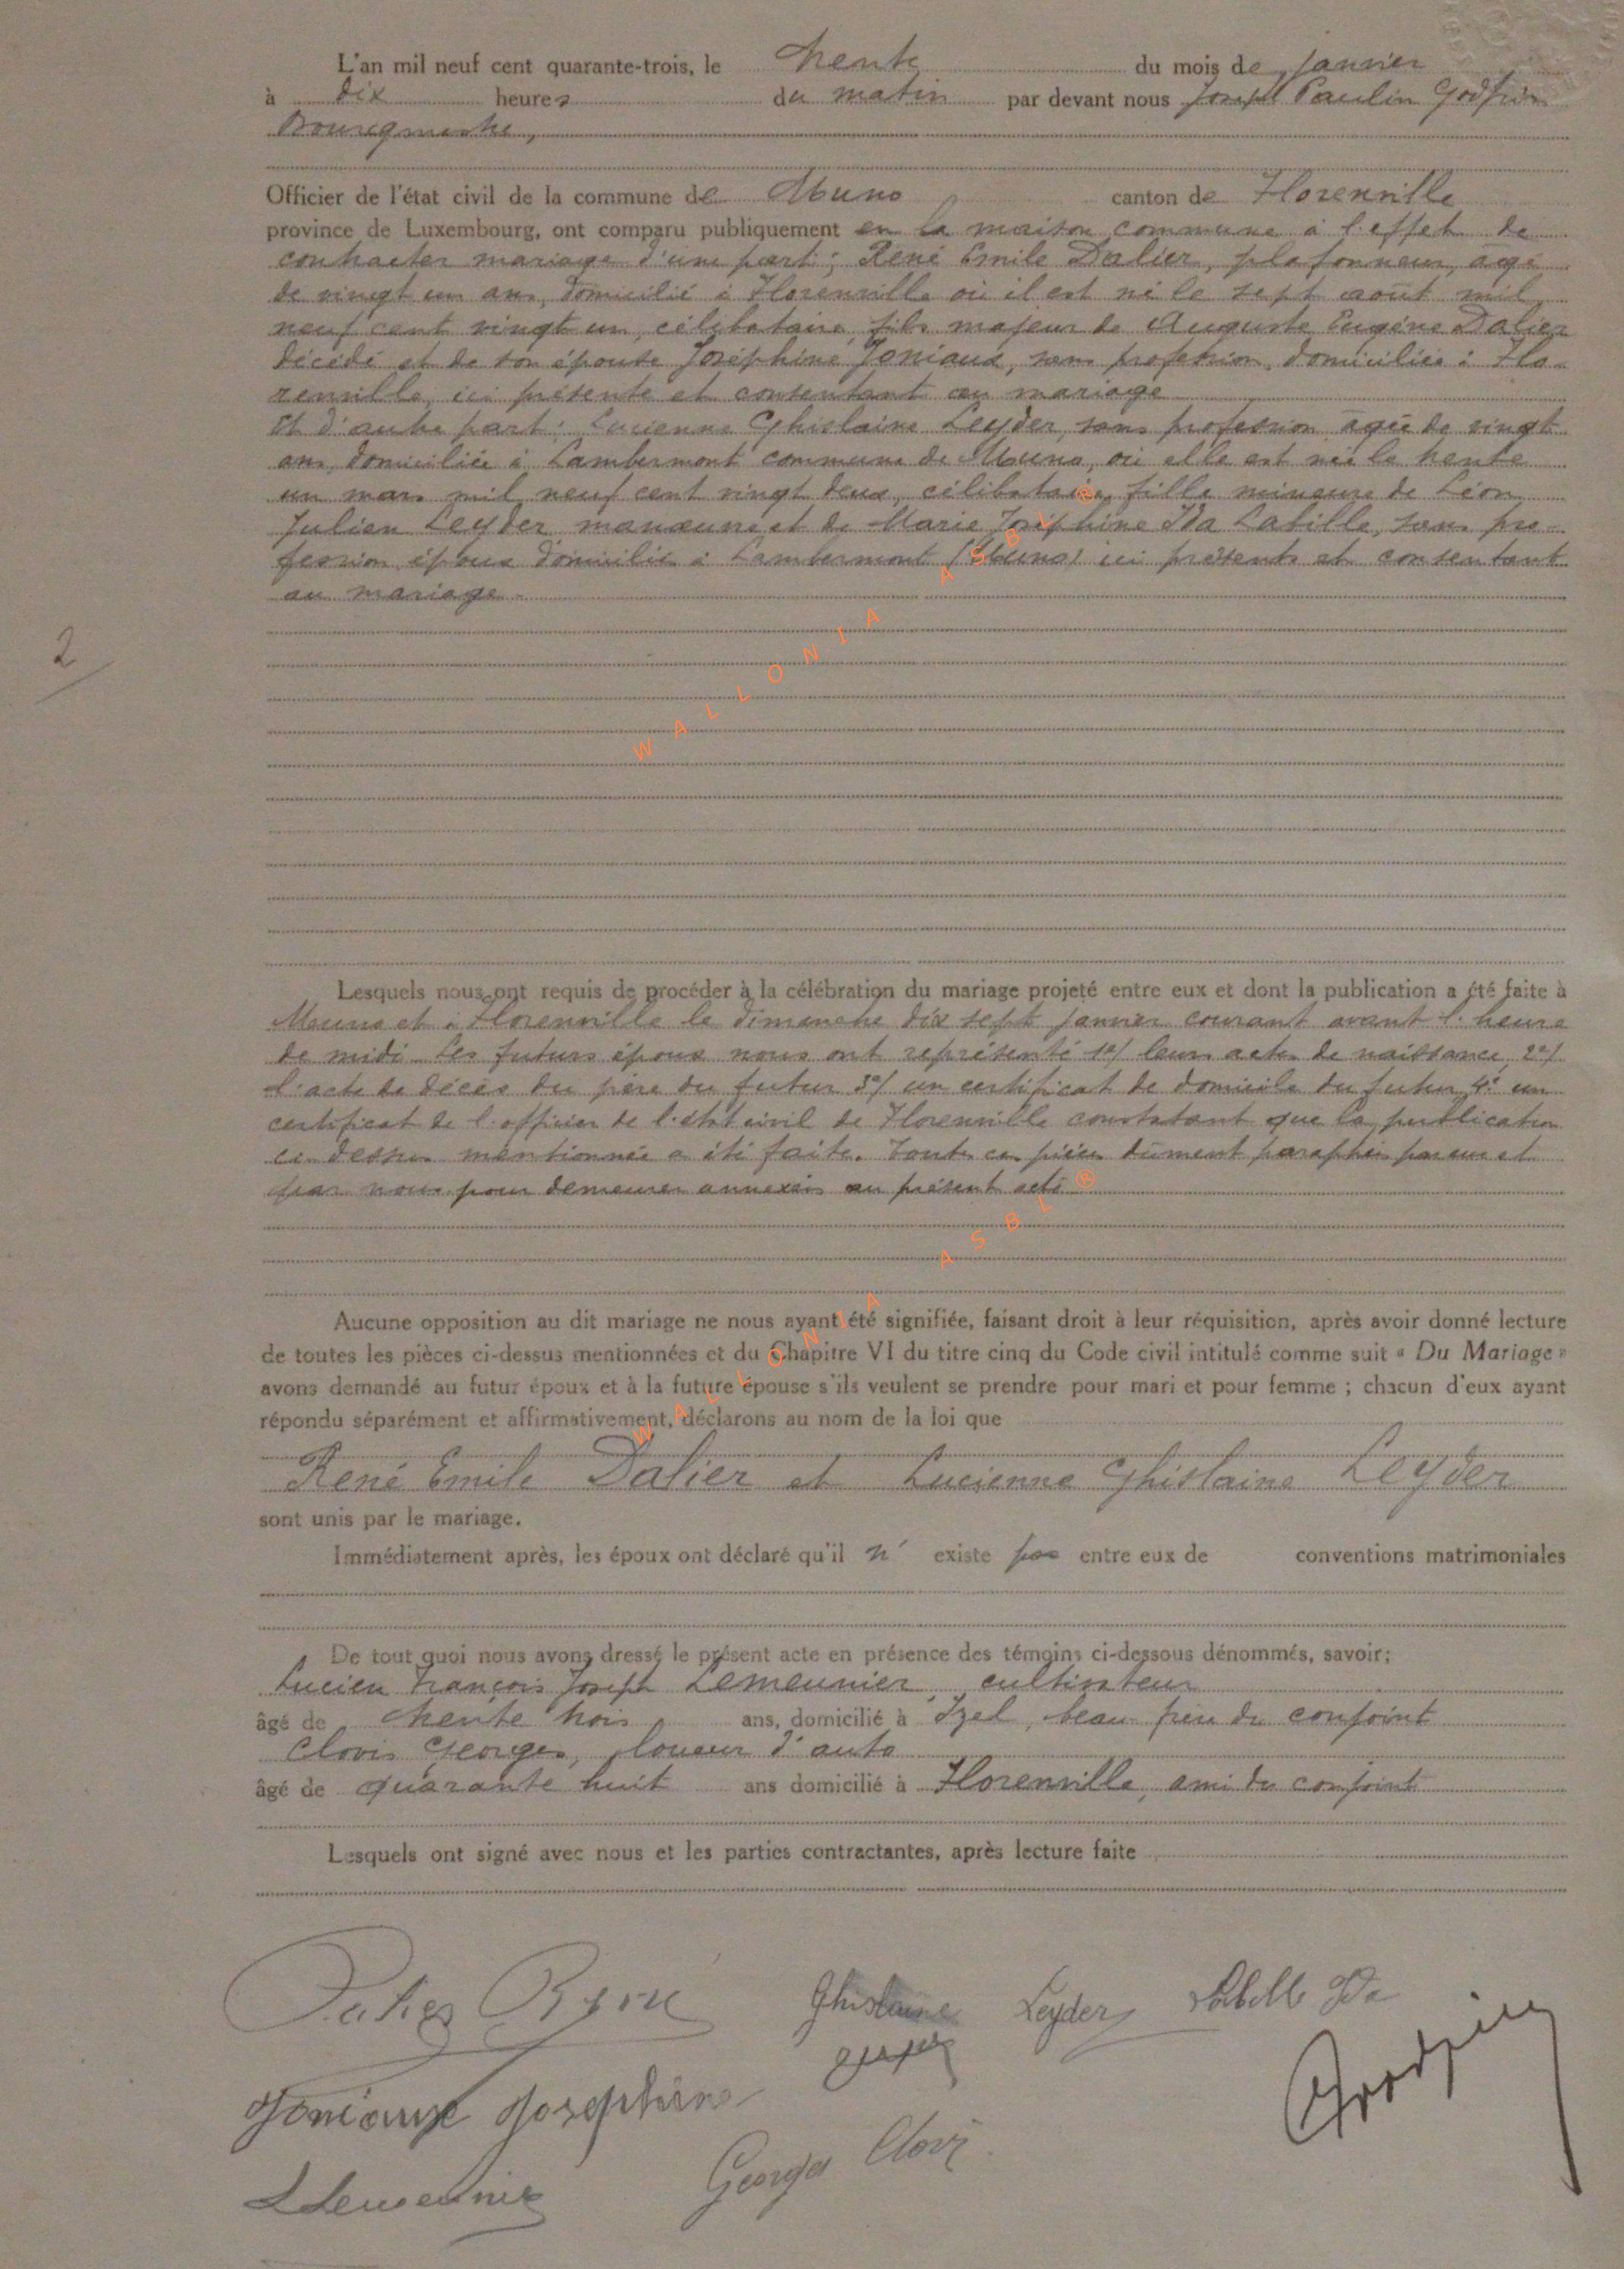 L'an mil neuf cent quarante-trois, le trente du mois de janvier
à dix heures du matin par devant nous Joseph Paulin Godfrin
Bourgmestre,
Officier de l'état civil de la commune de Muno canton de Florenville
province de Luxembourg, ont comparu publiquement en la maison commune à l'effet de
contracter mariage d'une part : René Emile Dalier, plafonneur, agé
de vingt un ans, domicilié à Florenville où il est né le sept août mil
neuf cent vingt un, célibataire, fils majeur de Auguste Eugène Dalier
décédé et de son épouse Joséphine Joniaux, sans profession, domiciliée à Flo-
renville, ici présente et consentant au mariage
Et d'autre part : Lucienne Ghislaine Leyder, sans profession agée de vingt
ans, domiciliée à Lambermont commune de Muno, où elle est née le trente
un mars mil neuf cent vingt deux, célibataire, fille mineure de Léon
Julien Leyder manœuvre et de Marie Joséphine Ida Labille, sans pro-
fession, époux domiciliés à Lambermont (Muno) ici présents et consentant
au mariage.
2
Lesquels nous ont requis de procéder à la célébration du mariage projeté entre eux et dont la publication a été faite à
Muno et à Florenville le dimanche dix sept janvier courant avant l'heure
de midi. Les futurs époux nous ont représenté 1°/ leurs actes de naissance, 2°/
l'acte de décès du père du futur 3°/ un certificat de domicile du futur, 4° un
certificat de l'officier de l'état civil de Florenville constatant que la publication
ci-dessus mentionnée a été faite. Toutes ces pièces dûment paraphées par eux et
par nous pour demeurer annexées au présent acte
Aucune opposition au dit mariage ne nous ayant été signifiée, faisant droit à leur réquisition, après avoir donné lecture
de toutes les pièces ci-dessus mentionnées et du Chapitre VI du titre cinq du Code civil intitulé comme suit « Du Mariage »
avons demandé au futur époux et à la future épouse s'ils veulent se prendre pour mari et pour femme ; chacun d'eux ayant
répondu séparément et affirmativement, déclarons au nom de la loi que
René Emile Dalier et Lucienne Ghislaine Leyder
sont unis par le mariage.
Immédiatement après, les époux ont déclaré qu'il n' existe pas entre eux de conventions matrimoniales
De tout quoi nous avons dressé le présent acte en présence des témoins ci-dessous dénommés, savoir;
Lucien François Joseph Lemeunier, cultivateur
âgé de trente trois ans, domicilié à Izel, beau frère du conjoint
Clovis Georges, loueur d'auto
âgé de quarante huit ans domicilié à Florenville, ami du conjoint
Lesquels ont signé avec nous et les parties contractantes, après lecture faite
Dalier René Ghislaine Leyder Labille Ida
Joniaux Joséphine Godfrin
Georges Clovis
L Lemeunier
WALLONIA ASBL®
WALLONIA ASBL®